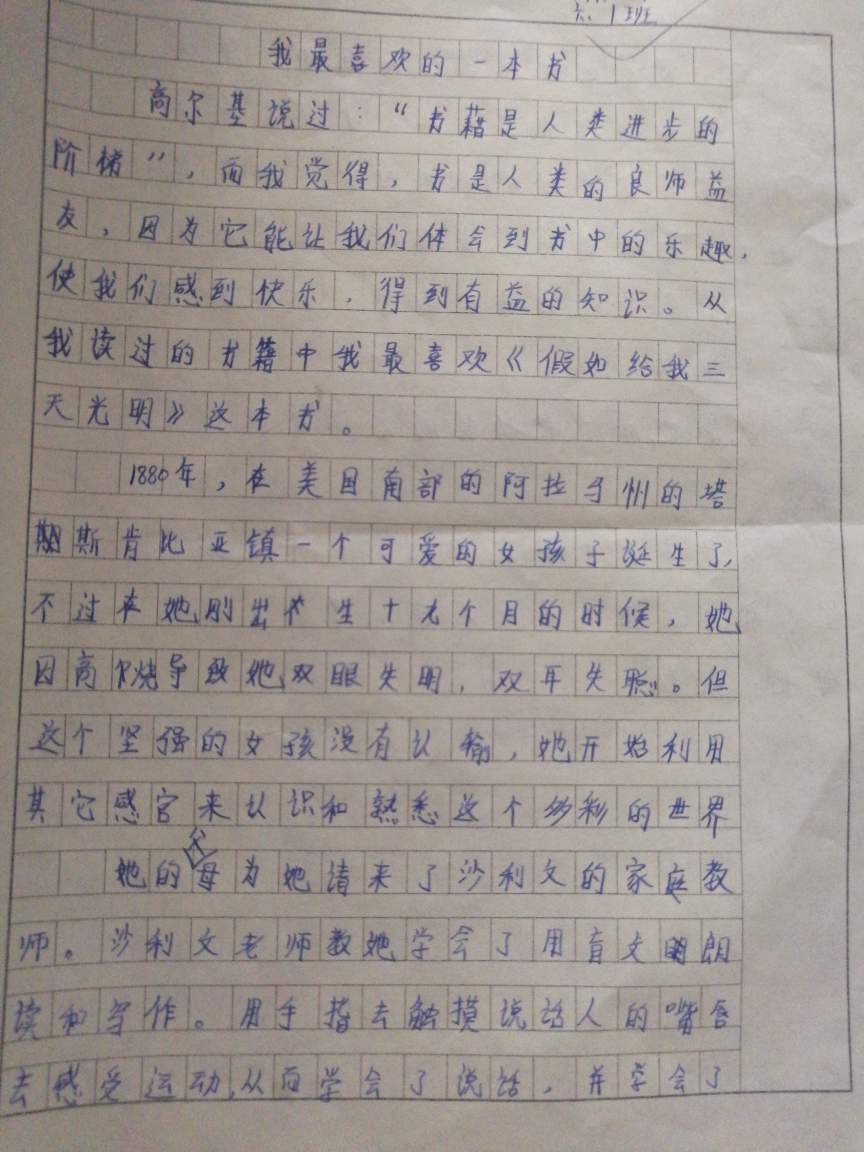 六1班
我最喜欢的一本书
高尔基说过:“书籍是人类进步的
阶梯”,而我觉得,书是人类的良师益
友,因为它能让我们体会到书中的乐趣,
使我们感到快乐,得到有益的知识。从
我读过的书籍中我最喜欢《假如给我三
天光明》这本书。
1880年,在美国南部的阿拉马州的塔
斯肯比亚镇一个可爱的女孩子诞生了,
不过在她刚出生十九个月的时候,她
因高烧导致她双眼失明,双耳失聪。但
这个坚强的女孩没有认输,她开始利用
其它感官来认识和熟悉这个多彩的世界
她的父母为她请来了沙利文的家庭教
师。沙利文老师教她学会了用盲文朗
读和写作。用手指去触摸说话人的嘴唇
去感受运动,从而学会了说话,并学会了